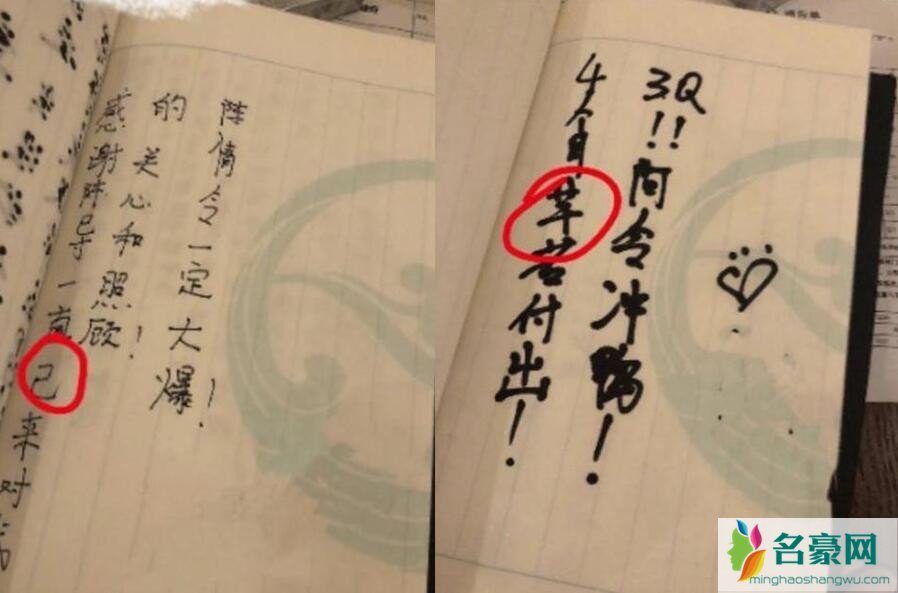 感谢陈导一直己来对
的关心和照顾！
陈情令一定大爆！
4个月芊苦付出！
3Q!!阿令冲鸭！
名豪网
minghaoshangwu.com